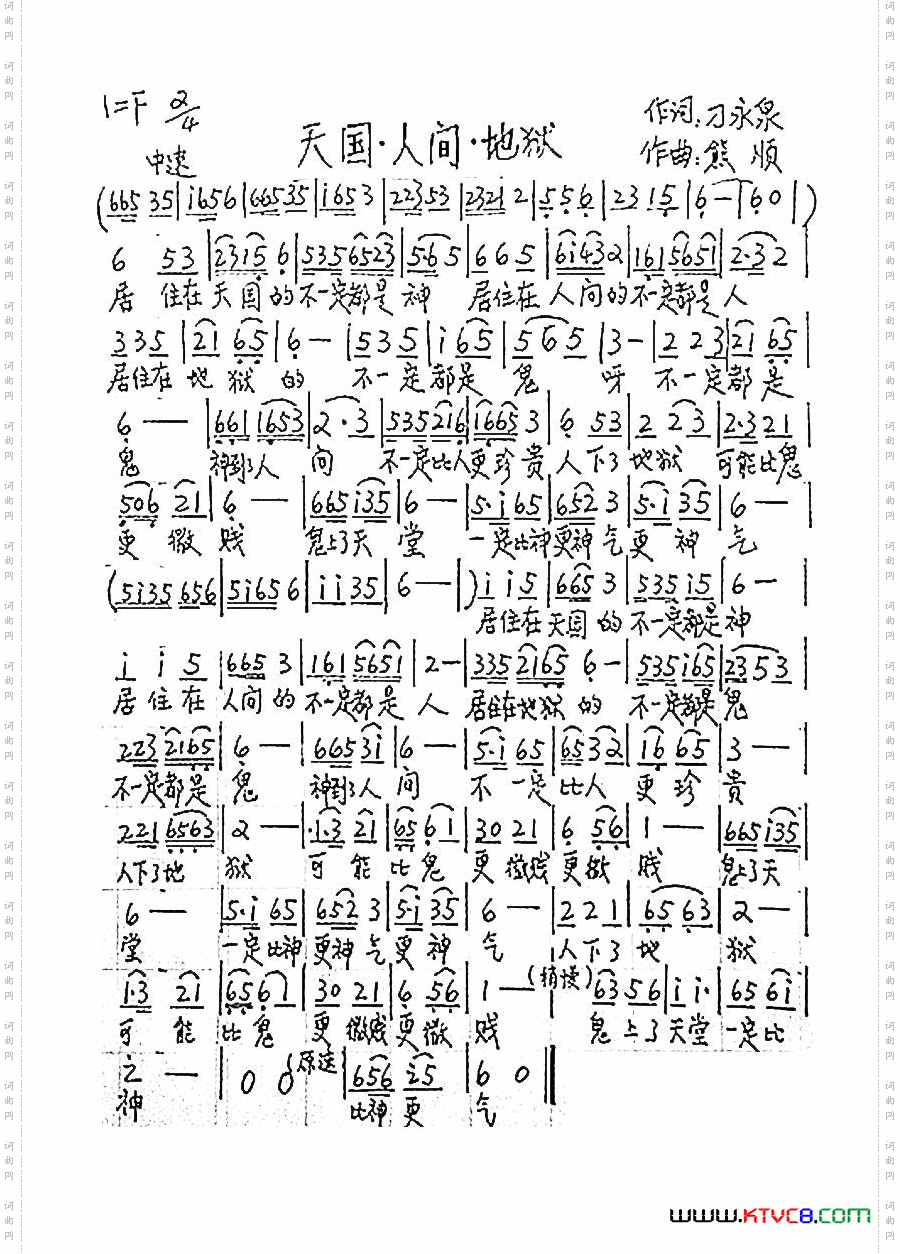 1=F 2/4
天国·人间·地狱
作词:刁永泉
中速
作曲:熊 顺
(665 35|i656|665 35|i653|223 53|2321 2|5 5 6|23 15|6 —|6 0|)
6 53|2315 6|535 6523|5·6 5|6 6 5|6i43 2|161 5651|2·3 2
居 住在天国的不一定都是神 居住在人间的不一定都是人
3 3 5|21 65|6 —|5 3 5|i 65|5 6 5|3 —|2 2 3|21 65|
居住在地狱的 不一定都是鬼 呀 不一定都是
6 —|661 1653|2·3|535 216|1665 3|6 53|2 23|2·3 21|
鬼 神到了人间 不一定比人更珍贵人下了地狱 可能比鬼
506 21|6 —|665 i35|6 —|5·i 65|652 3|5·i 35|6 —|
更微贱 鬼上了天堂 一定比神更神气更神气
(5i35 656|5i65 6|i i 35|6 —|)i i 5|665 3|535 i5|6 —|
居住在天国的不一定都是神
i i 5|665 3|161 5651|2 —|335 2165 6 —|535 i65|23 53
居住在人间的不一定都是人 居住在地狱的 不一定都是鬼
223 2165|6 —|665 3i|6 —|5·i 65|65 32|16 65|3 —
不一定都是鬼 神到了人间 不一定比人更珍贵
221 6563|2 —|1·3 21|65 61|30 21|6 56|1 —|665 i35
人下了地狱 可能比鬼更微贱更微贱 鬼上了天
6 —|5·i 65|652 3|5·i 35|6 —|2 2 1|65 63|2 —
堂 一定比神更神气更神气 人下了地狱
1·3 21|65 61|30 21|6 56|1 —|(稍慢)63 56|i i·|65 6i|
可能比鬼更微贱更微贱 鬼上了天堂一定比
2 —|0 0|原速|656 i5|6 0‖
神 比神更气
WWW.KTVC8.COM